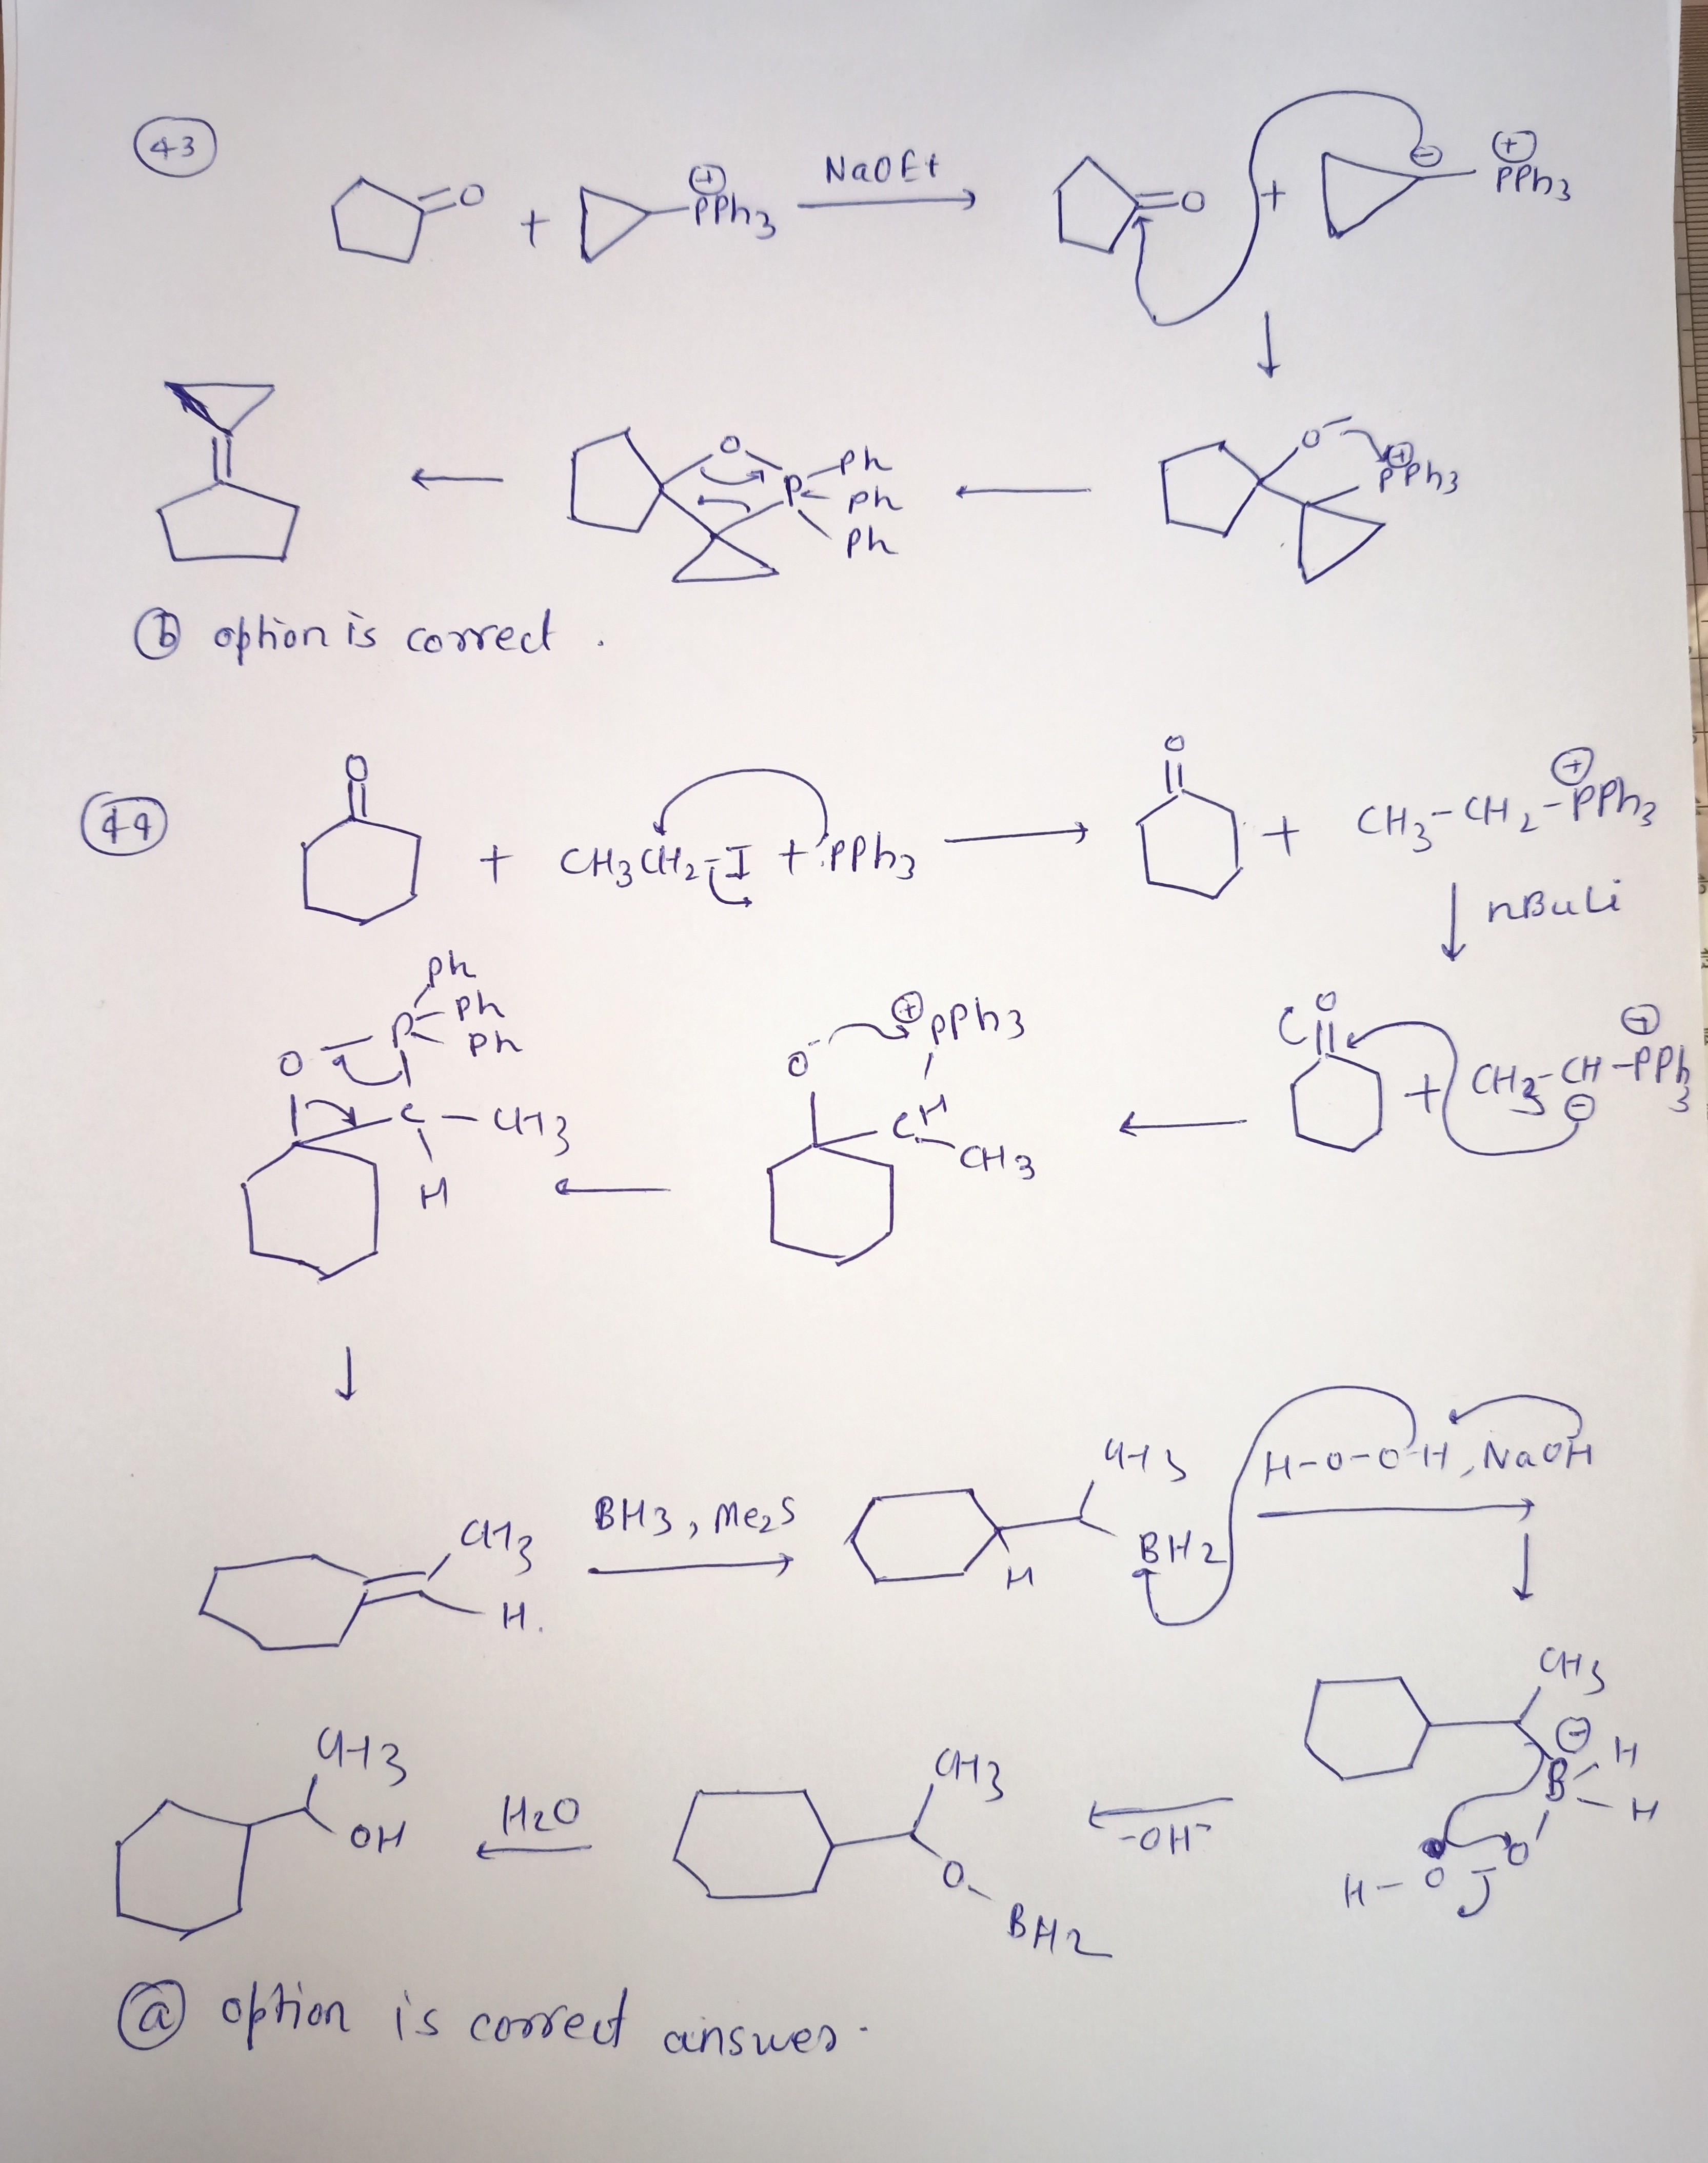 43
O + ⊕PPh3 NaOEt O + ⊖ ⊕PPh3
O Ph Ph Ph P O⁻ ⊕PPh3
ⓑ option is correct .
44
O + CH3CH2-I + :PPh3 O + CH3-CH2-⊕PPh3
nBuLi
O P Ph Ph Ph C - CH3 H O⁻ ⊕PPh3 CH CH3 O + CH3-CH-⊕PPh3 ⊖
CH3 H. BH3, Me2S CH3 BH2 H H-O-O-H, NaOH
CH3 ⊖ B H H H-O O
CH3 OH H2O CH3 O BH2 -OH⁻
ⓐ option is correct answer.